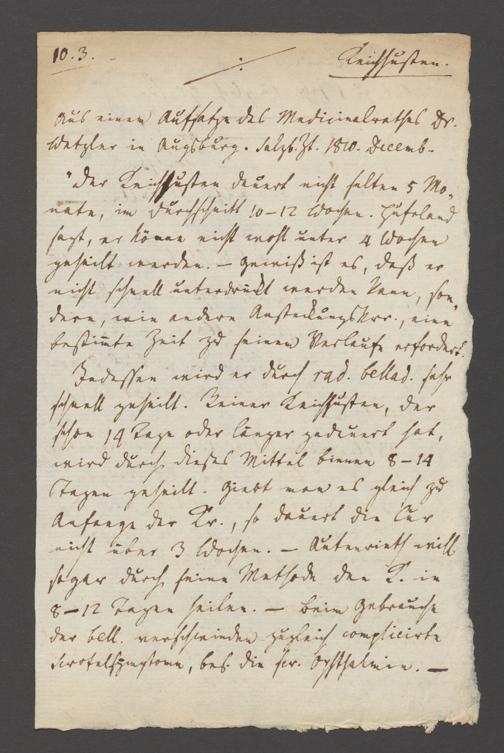 10.3. Keichhusten.
Aus einem Aufsatze des Medicinalrathes Dr.
Wetzler in Augsburg. Salzb. Zt. 1810. Decemb.
"Der Keichhusten dauert nicht selten 5 Mo-
nate, im Durchschnitt 10-12 Wochen. Hufeland
sagt, er könne nicht wohl unter 4 Wochen
geheilt werden. – Gewiß ist es, daß er
nicht schnell unterdrückt werden kann, son-
dern, wie andere Ansteckungskr., eine
bestimte Zeit zu seinem Verlaufe erfordert.
Indessen wird er durch rad. bellad. sehr
schnell geheilt. Keiner Keichhusten, der
schon 14 Tage oder länger gedauert hat,
wird durch dieses Mittel binnen 8-14
Tagen geheilt. Giebt man es gleich zu
Anfange der Kr., so dauert die Cur
nicht über 3 Wochen. – Autenrieth will
sogar durch seine Methode den K. in
8-12 Tagen heilen. – Beim Gebrauche
der bell. verschwinden zugleich complicirte
Scrofelsymptome, bes. die scr. Ophthalmie. –